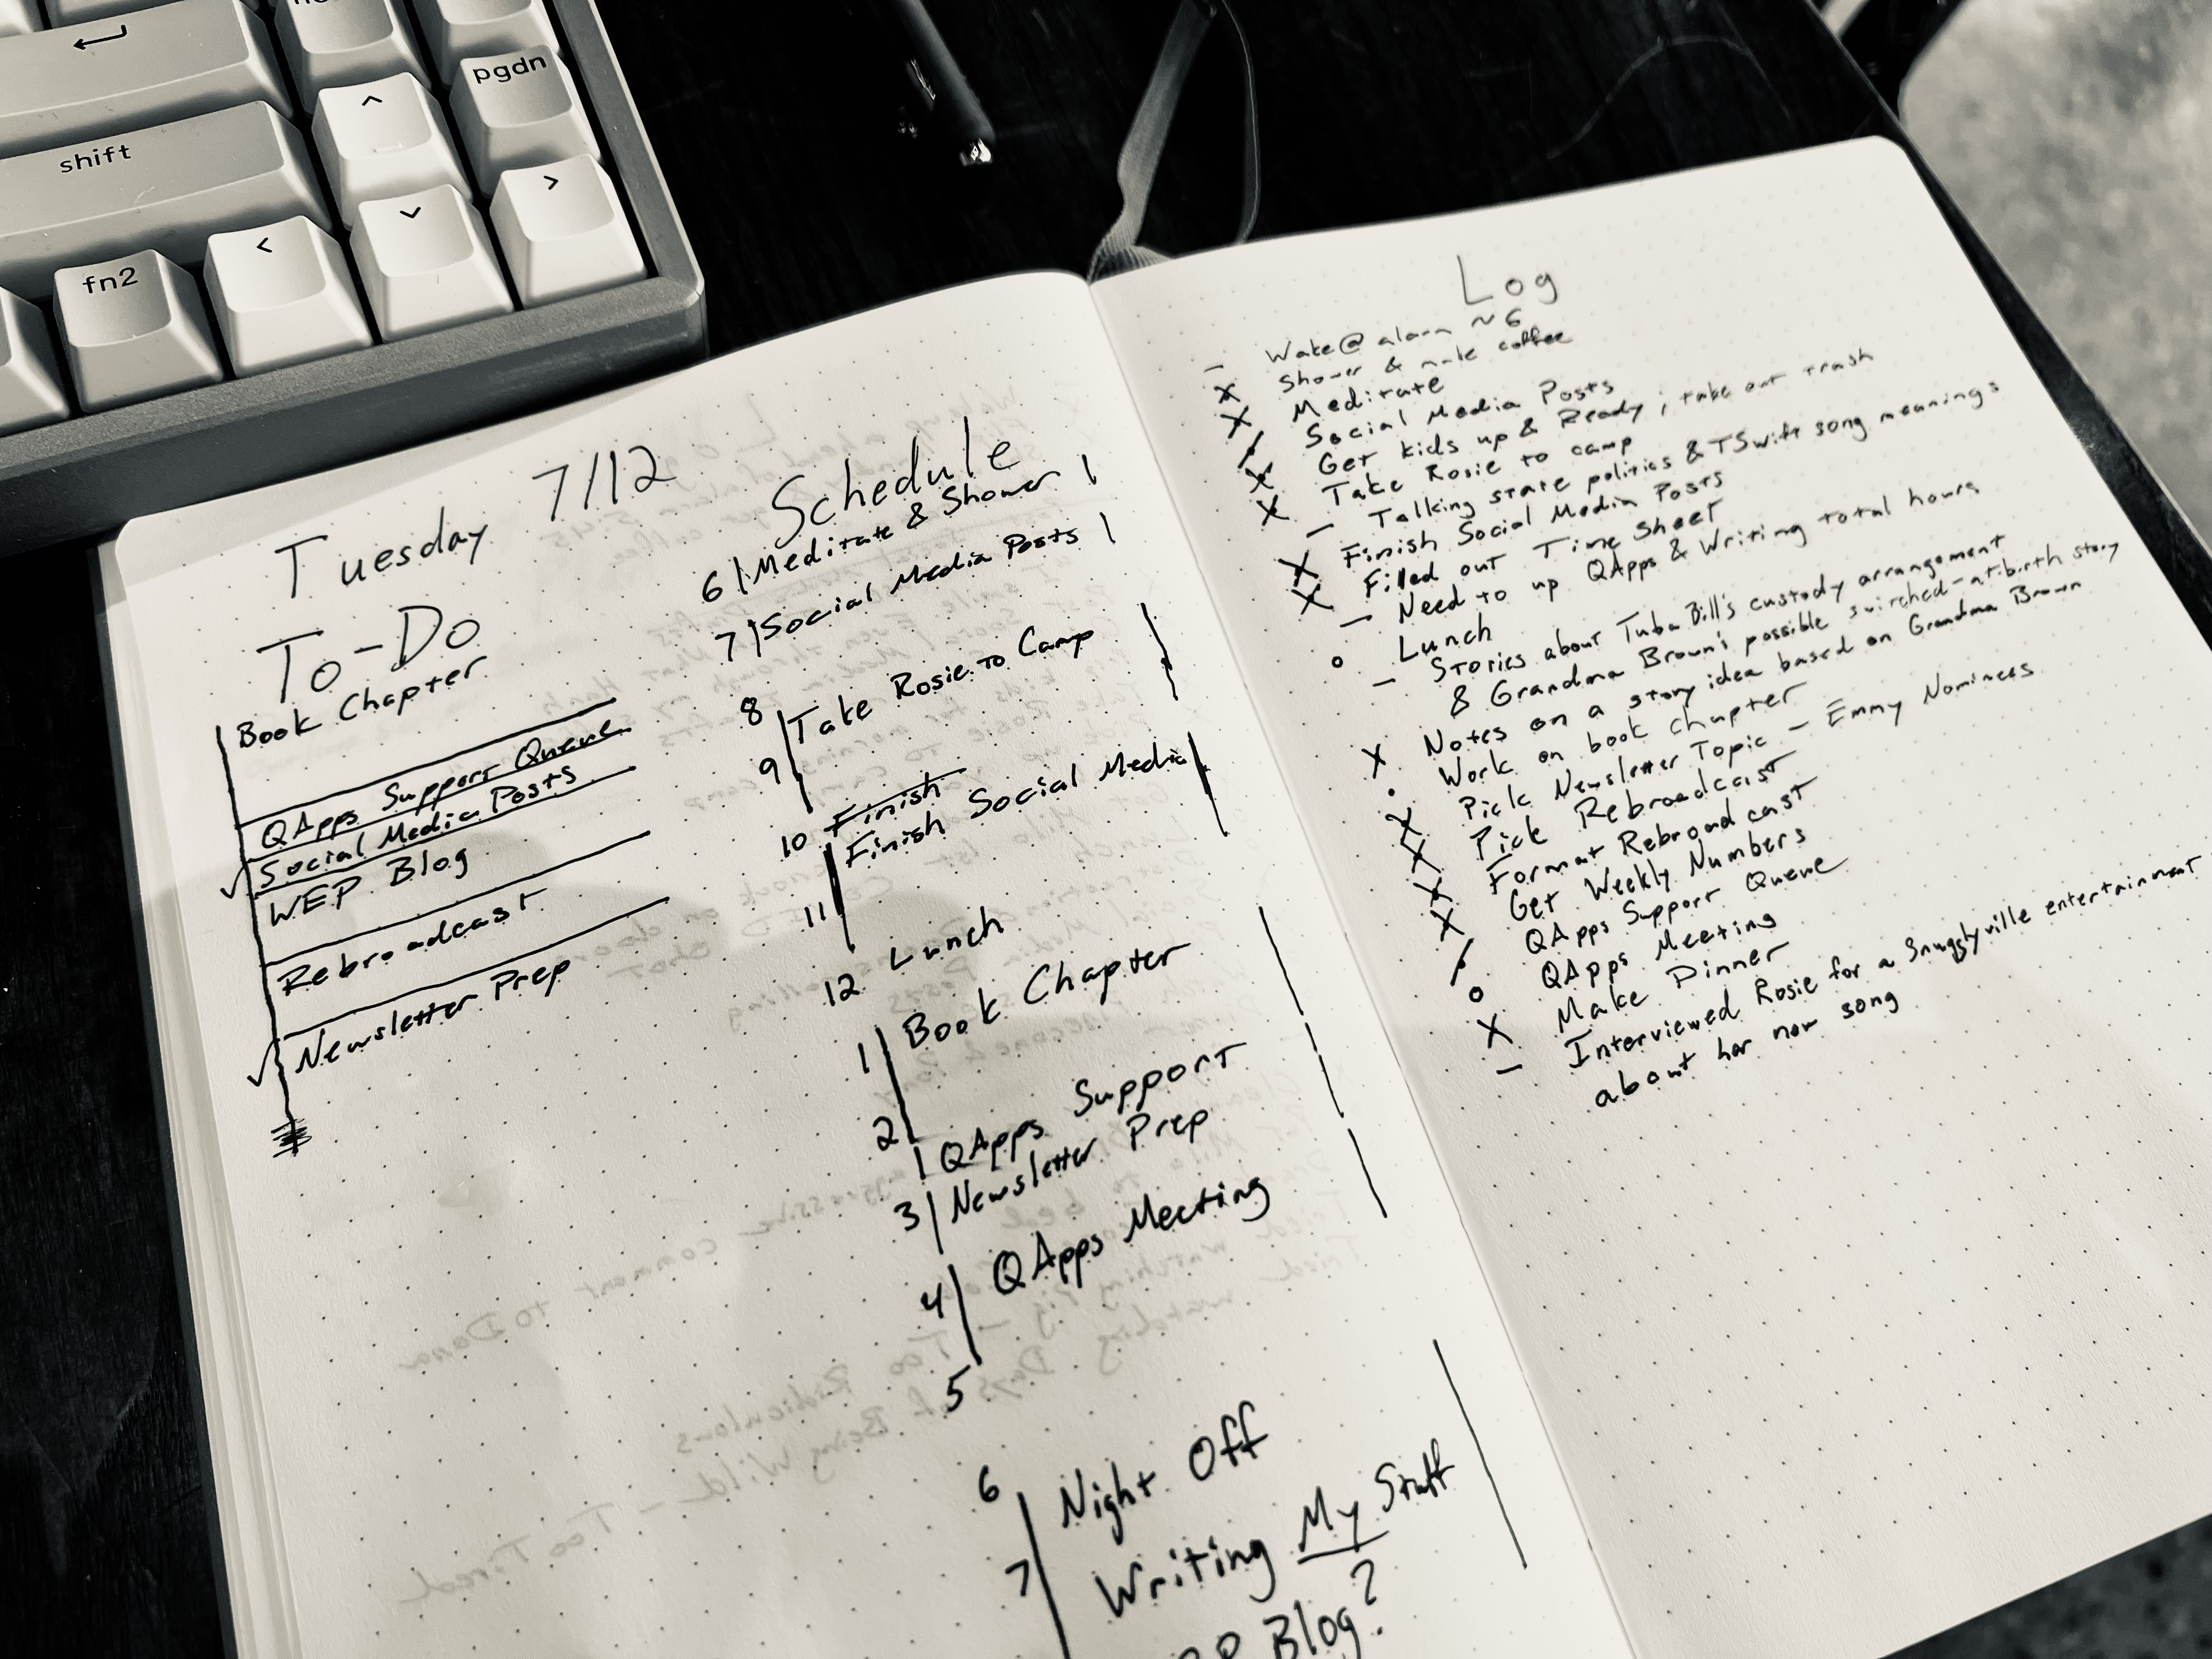 pgdn
shift
fn2
Tuesday 7/12
To-Do
Book Chapter
QApps Support Queue
Social Media Posts
WEP Blog
Rebroadcast
Newsletter Prep
Schedule
6 Meditate & Shower
7 Social Media Posts
8
Take Rosie to Camp
9
10 Finish
Finish Social Media
11
12 Lunch
Book Chapter
1
2
QApps Support
3 Newsletter Prep
QApps Meeting
4
5
6
Night Off
Writing My Stuff
7
Blog?
Log
– Wake @ alarm ~6
X Shower & make coffee
X Meditate
/ Social Media Posts
X Get kids up & Ready, take out trash
X Take Rosie to camp
– Talking state politics & TSwift song meanings
X Finish Social Media Posts
X Filled out Time Sheet
– Need to up QApps & Writing total hours
o Lunch
– Stories about Tuba Bill's custody arrangement
& Grandma Brown's possible switched-at-birth story
X Notes on a story idea based on Grandma Brown
• Work on book chapter
X Pick Newsletter Topic – Emmy Nominees
X Pick Rebroadcast
X Format Rebroadcast
X Get Weekly Numbers
/ QApps Support Queue
o QApps Meeting
X Make Dinner
– Interviewed Rosie for a Snugglyville entertainment
about her new song